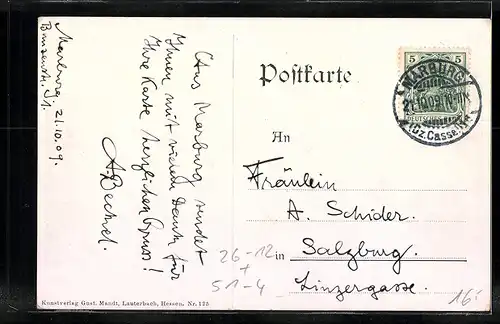 Marburg, 21.10.09.
Aus Marburg sendet
Ihnen mit vielem Dank für
Ihre Karte herzlichen Gruss!
A. Bechtel.
Postkarte
5
DEUTSCHES
MARBURG
21.10.09
(Bz. Cassel)
An
Fräulein
A. Schider.
in Salzburg.
Linzergasse.
26-12
+
51-4
16.-
Kunstverlag Gust. Mandt, Lauterbach, Hessen. Nr. 125